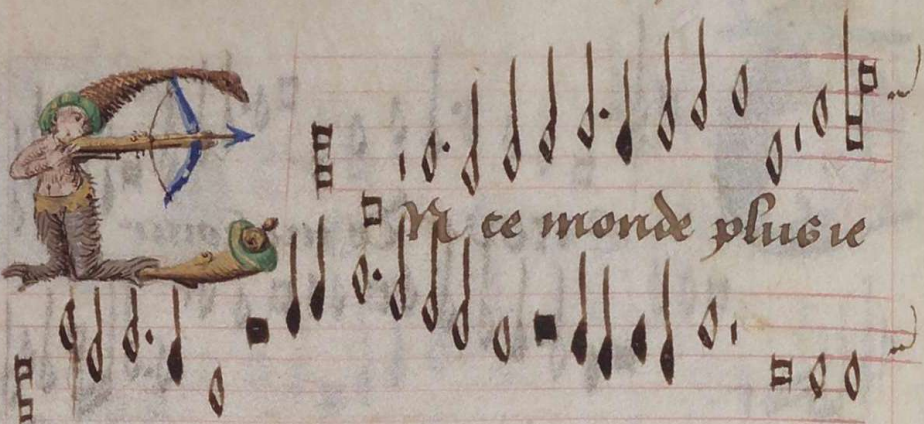 En ce monde plus ie